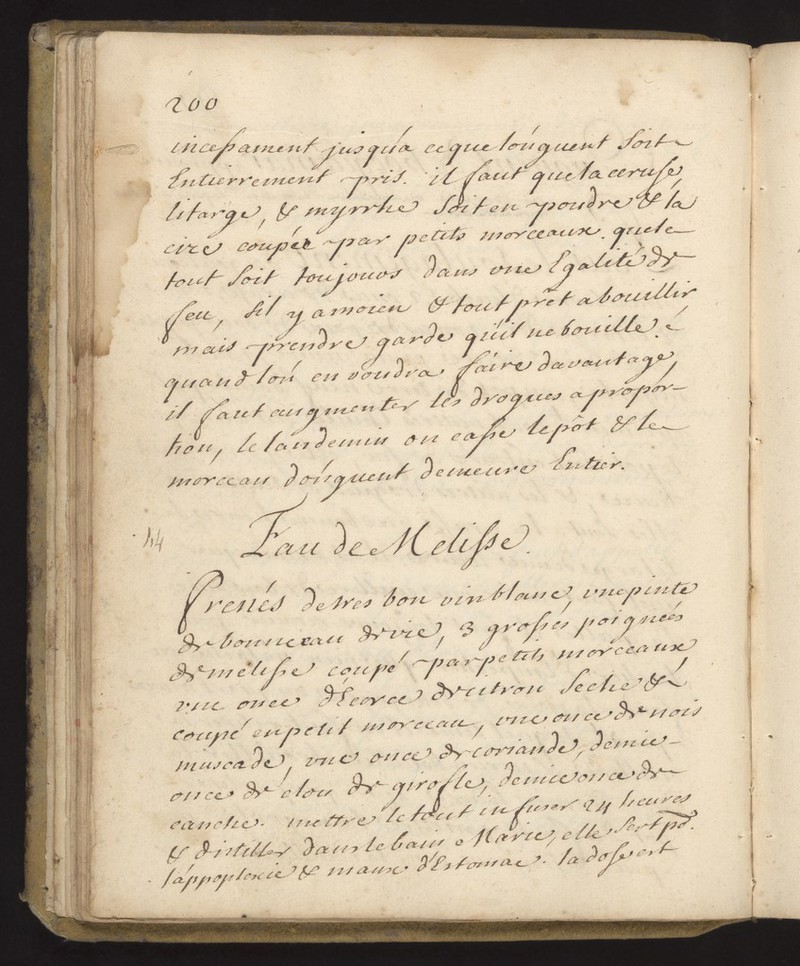 200
incessament jusqu'a ceque l'onguent soit
Entierrement pris. il faut que la ceruse,
litarge, & myrrhe soit en poudre & la
cire coupée par petits morceaux que le
tout soit toujours dans une Egalité de
feu, sil y a moien & tout prêt a bouillir
mais prendre garde qu'il ne bouille. é
quand l'on en voudra faire davantage,
il faut augmenter les drogues a propor-
tion, le landemin on casse le pôt & le
morceau d'onguent demeure Entier.
44
Eau de Melisse.
Prenés de tres bon vin blanc, une pinte
de bonne eau de vie, 3 grosses poignées
de melisse coupé par petits morceaux
une once d'Ecorce de citron seche &
coupé en petit morceau, une once de nois
muscade, une once de coriande, demie
once de clou de girofle, demie once de
canelle. mettre le tout infuser 24 heures
& distiller dans le bain Marie, elle sert po.
l'appoplexie & maux d'Estomac. la dose est